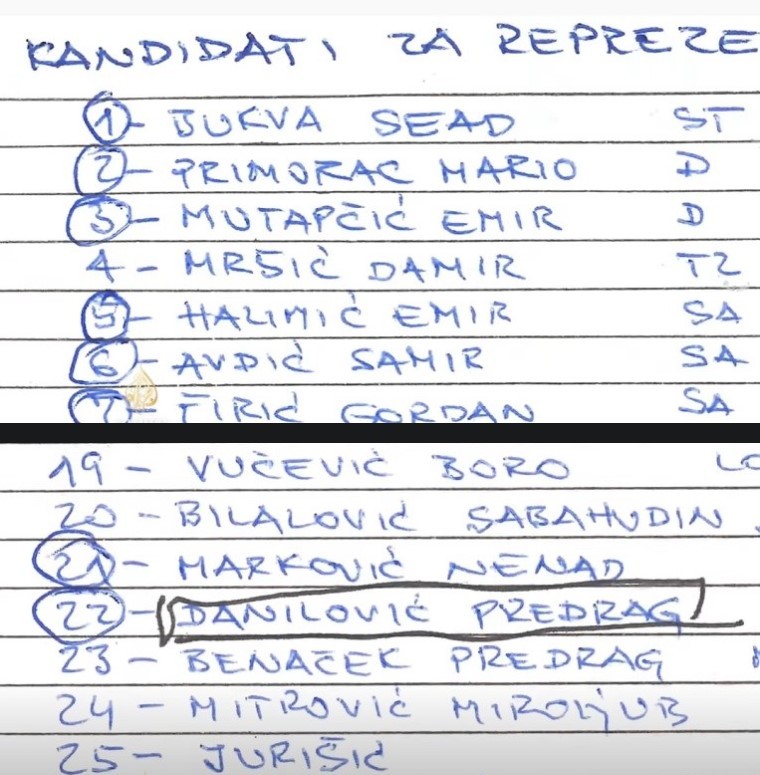 KANDIDATI ZA REPREZE
1- BUKVA SEAD ST
2- PRIMORAC MARIO D
3- MUTAPČIĆ EMIR D
4- MRŠIĆ DAMIR TZ
5- HALIMIĆ EMIR SA
6- AVDIĆ SAMIR SA
7- FIRIĆ GORDAN SA
19- VUČEVIĆ BORO LO
20- BILALOVIĆ SABAHUDIN
21- MARKOVIĆ NENAD
22- DANILOVIĆ PREDRAG
23- BENAČEK PREDRAG
24- MITROVIĆ MIROLJUB
25- JURIŠIĆ